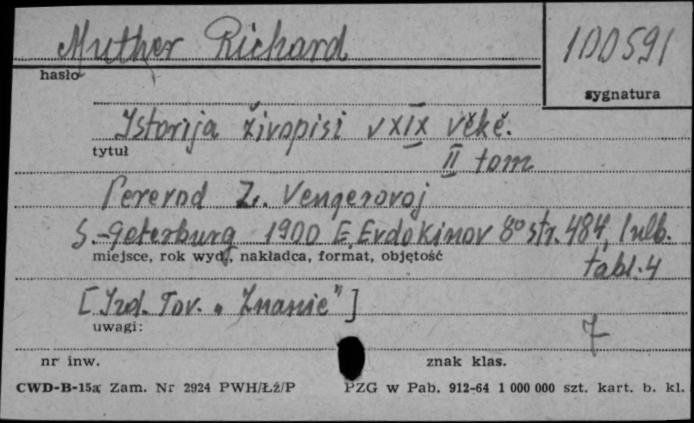 Muther Richard
100591
hasło
sygnatura
Istorija živopisi v XIX věkě.
tytuł
II tom
Perevod Z. Vengerovoj
S.-Peterburg 1900 E. Evdokimov 8° str. 484, 1 nlb.
miejsce, rok wyd., nakładca, format, objętość
tabl. 4
[Izd. Tov. „Znanie"]
uwagi:
7
nr inw.
znak klas.
CWD-B-15a Zam. Nr 2924 PWH/Łż/P PZG w Pab. 912-64 1 000 000 szt. kart. b. kl.